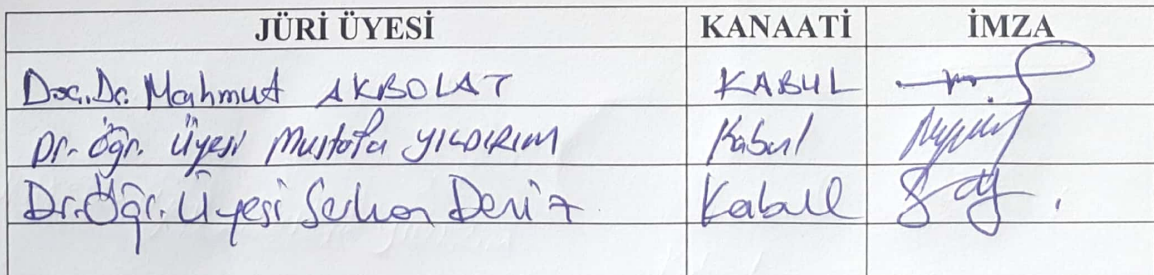 JÜRİ ÜYESİ KANAATİ İMZA
Doç. Dr. Mahmut AKBOLAT KABUL
Dr. Öğr. Üyesi Mustafa YILDIRIM Kabul
Dr. Öğr. Üyesi Serhan Deniz Kabul